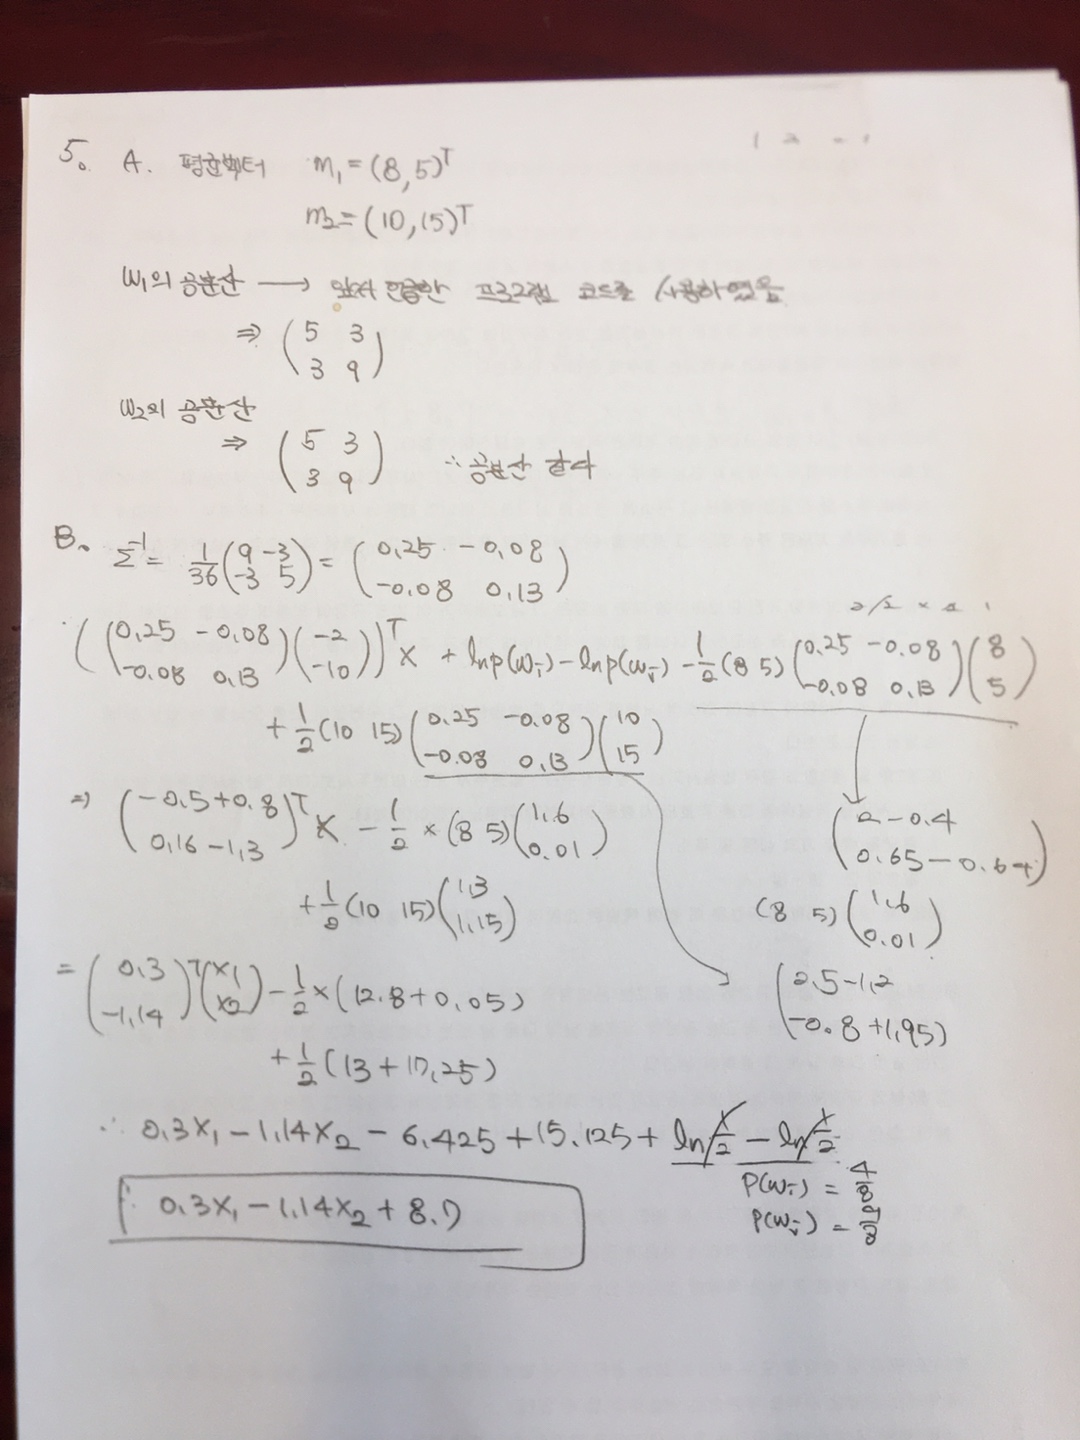 5. A. 평균벡터 m₁ = (8, 5)ᵀ
m₂ = (10, 15)ᵀ
W₁의 공분산 → 앞서 언급한 프로그램 코드를 사용하였음
⇒ (5 3
3 9)
W₂의 공분산
⇒ (5 3
3 9) ∴ 공분산 같다
B. Σ⁻¹ = 1/36 (9 -3
-3 5) = (0.25 -0.08
-0.08 0.13)
((0.25 -0.08
-0.08 0.13)(-2
-10))ᵀ x + ln p(wᵢ) - ln p(wⱼ) - 1/2 (8 5)(0.25 -0.08
-0.08 0.13)(8
5)
+ 1/2 (10 15)(0.25 -0.08
-0.08 0.13)(10
15)
⇒ (-0.5+0.8
0.16-1.3)ᵀ x - 1/2 × (8 5)(1.6
0.01)
(2-0.4
0.65-0.64)
+ 1/2 (10 15)(1.3
1.15)
(8 5)(1.6
0.01)
= (0.3
-1.14)ᵀ(x1
x2) - 1/2 × (12.8+0.05)
(2.5-1.2
-0.8+1.95)
+ 1/2 (13+17.25)
∴ 0.3x₁ - 1.14x₂ - 6.425 + 15.125 + ln 1/2 - ln 1/2
p(wᵢ) = 4/8
p(wⱼ) = 4/8
∴ 0.3x₁ - 1.14x₂ + 8.7